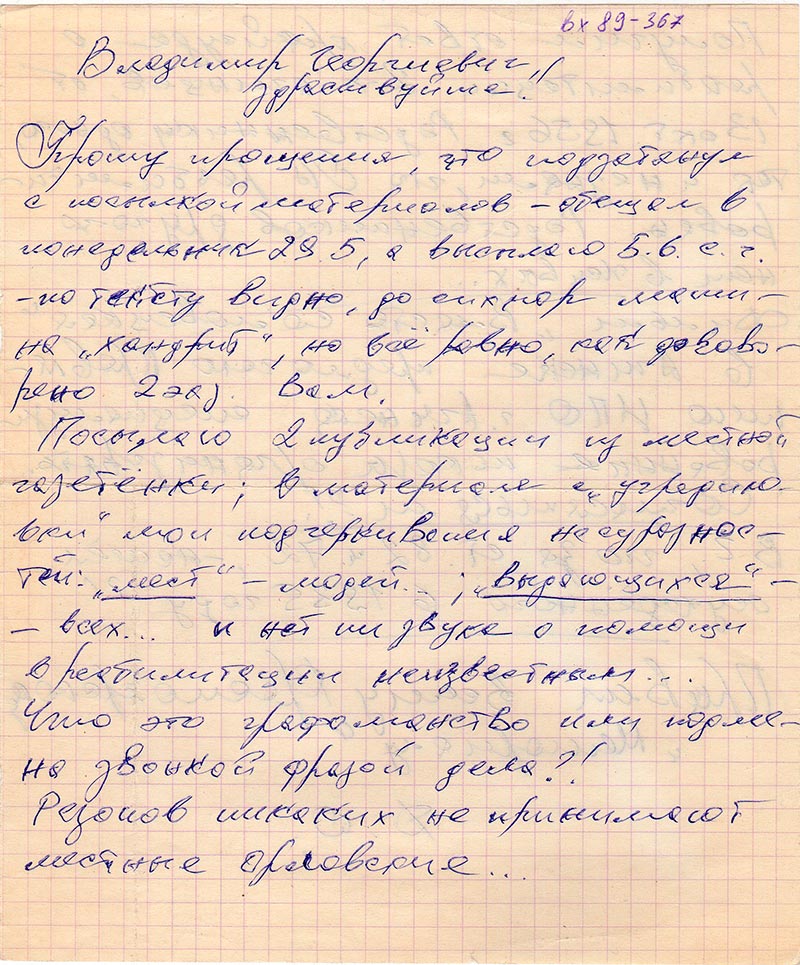 вх 89-367
Владимир Георгиевич,
здравствуйте!
Прошу прощения, что подзатянул
с посылкой материалов – обещал в
понедельник 29.5, а высылаю 5.6. с. г.
– по тексту видно, до сих пор маши-
на „хандрит“, но всё равно, как догово-
рено 2 экз. Вам.
Посылаю 2 публикации из местной
газетёнки; в материале с
мои подчеркивания несуразнос-
тей: „мест“ – людей... ; „выдающихся“ –
– всех... и нет ни звука о помощи
в реабилитации неизвестным...
Что это графоманство или подме-
на звонкой фразой дела?!
Резонов никаких не принимают
местные орловские...